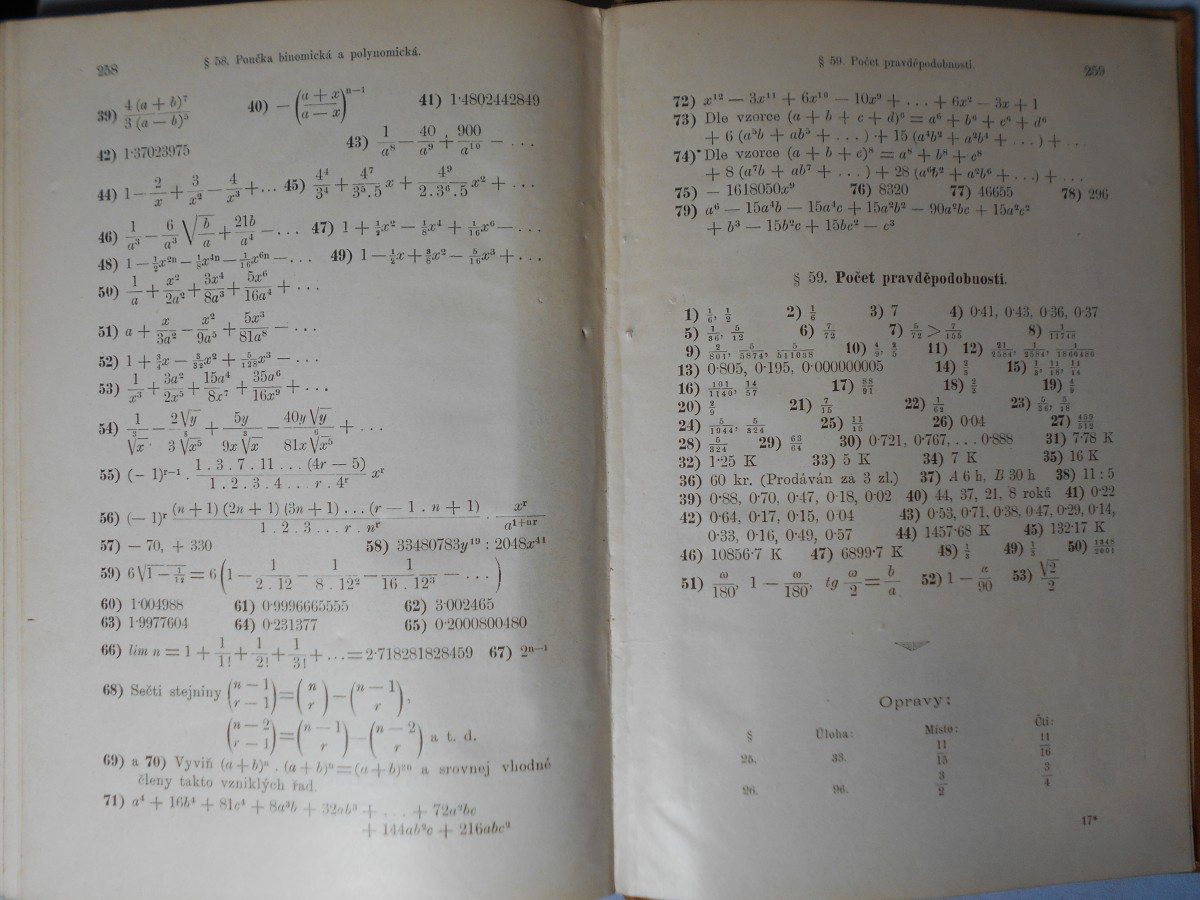 258
§ 58. Poučka binomická a polynomická.
39) 4 (a + b)⁷ / 3 (a − b)⁵ 40) − ((a + x)/(a − x))ⁿ⁻¹ 41) 1·4802442849
42) 1·37023975 43) 1/a⁸ − 40/a⁹ + 900/a¹⁰ − . . .
44) 1 − 2/x + 3/x² − 4/x³ + . . . 45) 4⁴/3⁴ + 4⁷/(3⁵ . 5) x + 4⁹/(2 . 3⁶ . 5) x² + . . .
46) 1/a³ − 6/a³ √(b/a) + 21b/a⁴ − . . . 47) 1 + ½x² − ⅛x⁴ + 1/16 x⁶ − . . .
48) 1 − ½x²ⁿ − ⅛x⁴ⁿ − 1/16 x⁶ⁿ − . . . 49) 1 − ½x + ⅜x² − 5/16 x³ + . . .
50) 1/a + x²/2a² + 3x⁴/8a³ + 5x⁶/16a⁴ + . . .
51) a + x/3a² − x²/9a⁵ + 5x³/81a⁸ − . . .
52) 1 + ¾x − 3/32 x² + 5/128 x³ − . . .
53) 1/x³ + 3a²/2x⁵ + 15a⁴/8x⁷ + 35a⁶/16x⁹ + . . .
54) 1/∛x − 2√y / 3 ∛x⁵ + 5y / 9x ∛x − 40y √y / 81x ∛x⁵ + . . .
55) (− 1)ʳ⁻¹ · 1 . 3 . 7 . 11 . . . (4r − 5) / 1 . 2 . 3 . 4 . . . r . 4ʳ xʳ
56) (− 1)ʳ (n + 1) (2n + 1) (3n + 1) . . . (r − 1 . n + 1) / 1 . 2 . 3 . . . r . nʳ · xʳ / a¹⁺ⁿʳ
57) − 70, + 330 58) 33480783y¹⁹ : 2048x⁴¹
59) 6√(1 − 1/12) = 6 (1 − 1/(2 . 12) − 1/(8 . 12²) − 1/(16 . 12³) − . . .)
60) 1·004988 61) 0·9996665555 62) 3·002465
63) 1·9977604 64) 0·231377 65) 0·2000800480
66) lim n = 1 + 1/1! + 1/2! + 1/3! + . . . = 2·718281828459 67) 2ⁿ⁻¹
68) Sečti stejniny (n − 1 / r − 1) = (n / r) − (n − 1 / r),
(n − 2 / r − 1) = (n − 1 / r) − (n − 2 / r) a t. d.
69) a 70) Vyviň (a + b)ⁿ . (a + b)ⁿ = (a + b)²ⁿ a srovnej vhodné
členy takto vzniklých řad.
71) a⁴ + 16b⁴ + 81c⁴ + 8a³b + 32ab³ + . . . + 72a²bc
+ 144ab²c + 216abc²
§ 59. Počet pravděpodobnosti.
259
72) x¹² − 3x¹¹ + 6x¹⁰ − 10x⁹ + . . . + 6x² − 3x + 1
73) Dle vzorce (a + b + c + d)⁶ = a⁶ + b⁶ + c⁶ + d⁶
+ 6 (a⁵b + ab⁵ + . . . ) + 15 (a⁴b² + a²b⁴ + . . . ) + . . .
74) Dle vzorce (a + b + c)⁸ = a⁸ + b⁸ + c⁸
+ 8 (a⁷b + ab⁷ + . . . ) + 28 (a⁶b² + a²b⁶ + . . .) + . . .
75) − 1618050x⁹ 76) 8320 77) 46655 78) 296
79) a⁶ − 15a⁴b − 15a⁴c + 15a²b² − 90a²bc + 15a²c²
+ b³ − 15b²c + 15bc² − c³
§ 59. Počet pravděpodobnosti.
1) 1/6, 1/2 2) 1/6 3) 7 4) 0·41, 0·43, 0·36, 0·37
5) 1/36, 5/12 6) 7/72 7) 5/72 > 7/155 8) 1/11748
9) 2/801, 5/5874, 5/511038 10) 4/9, 2/5 11) 12) 21/2584, 1/2584, 1/1860480
13) 0·805, 0·195, 0·000000005 14) 2/3 15) 1/3, 11/18, 11/14
16) 101/1140, 14/57 17) 88/91 18) 2/3 19) 4/9
20) 2/9 21) 7/15 22) 1/62 23) 5/36, 5/18
24) 5/1944, 5/324 25) 11/15 26) 0·04 27) 459/512
28) 5/324 29) 63/64 30) 0·721, 0·767, . . . 0·888 31) 7·78 K
32) 1·25 K 33) 5 K 34) 7 K 35) 16 K
36) 60 kr. (Prodáván za 3 zl.) 37) A 6 h, B 30 h 38) 11 : 5
39) 0·88, 0·70, 0·47, 0·18, 0·02 40) 44, 37, 21, 8 roků 41) 0·22
42) 0·64, 0·17, 0·15, 0·04 43) 0·53, 0·71, 0·38, 0·47, 0·29, 0·14,
0·33, 0·16, 0·49, 0·57 44) 1457·68 K 45) 132·17 K
46) 10856·7 K 47) 6899·7 K 48) 1/3 49) 1/3 50) 1249/2001
51) ω/180, 1 − ω/180, tg ω/2 = b/a 52) 1 − α/90 53) √2/2
Opravy:
§ Úloha: Místo: Čti:
25. 33. 11/15 11/16
26. 96. 3/2 3/4
17*